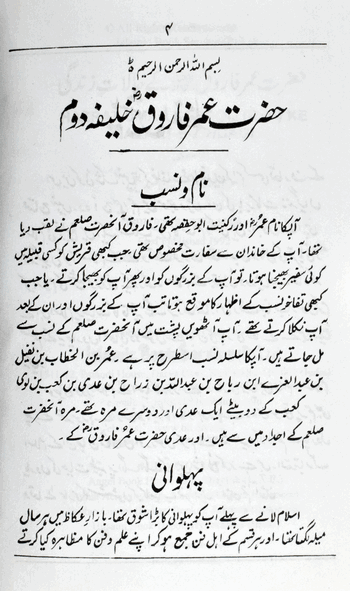 ۳
بسم اللہ الرحمن الرحیم ۵
حضرت عمر فاروقؓ خلیفہ دوم
نام و نسب
آپکا نام عمرؓ اور کنیت ابو حفصہ تھی۔ فاروق آنحضرت صلعم نے لقب دیا
تھا۔ آپ کے خاندان سے سفارت مخصوص تھی۔ جب کبھی قریش کو کسی قبیلہ میں
کوئی سفیر بھیجنا ہوتا۔ تو آپ کے بزرگوں کو اور پھر آپ کو بھیجا کرتے۔ یا جب
کبھی تفاخر نسب کے اظہار کا موقع ہوتا تب آپ کے بزرگوں اور ان کے بعد
آپ نکلا کرتے تھے۔ آپ آٹھویں پشت میں آنحضرت صلعم کے نسب سے
مل جاتے ہیں۔ آپکا سلسلہ نسب اسطرح پر ہے۔ عمرؓ بن الخطاب بن نفیل
بن عبدالعزے ابن رباح بن عبداللہ بن زراح بن عدی بن کعب بن لوی
کعب کے دو بیٹے ایک عدی اور دوسرے مرہ تھے۔ مرہ آنحضرت
صلعم کے اجداد میں سے ہیں۔ اور عدی حضرت عمر فاروقؓ کے۔
پہلوانی
اسلام لانے سے پہلے آپ کو پہلوانی کا بڑا شوق تھا۔ بازار عکاظ میں ہر سال
میلہ لگتا تھا۔ اور ہر قسم کے اہل فن جمع ہو کر اپنے علم و فن کا مظاہرہ کیا کرتے